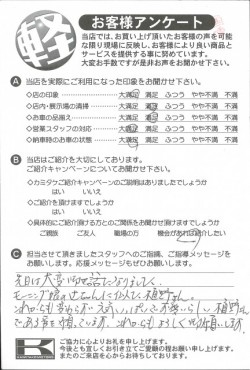 軽
お客様アンケート
当店では、お買い上げ頂いたお客様の声を可能
な限り現場に反映し、お客様により良い商品と
サービスを提供する事に努めています。
大変お手数ですが是非お声をお聞かせ下さい。
A 当店を実際にご利用になった印象をお聞かせ下さい。
◇店の印象 大満足 満足 ふつう やや不満 不満
◇店内・展示場の清掃 大満足 満足 ふつう やや不満 不満
◇お車の品揃え 大満足 満足 ふつう やや不満 不満
◇営業スタッフの対応 大満足 満足 ふつう やや不満 不満
◇納車時のお車の状態 大満足 満足 ふつう やや不満 不満
B 当店はご紹介を大切にしております。
ご紹介キャンペーンについてお聞かせ下さい。
・カミタケご紹介キャンペーンのご説明はありましたでしょうか
はい いいえ
・ご紹介を頂けますでしょうか
はい いいえ
・具体的にご紹介頂ける方とのご関係をお聞かせ頂けますでしょうか
ご親族 ご友人 職場の方 機会があれば紹介したい
C 担当させて頂きましたスタッフへのご指摘、ご指導メッセージを
お願いします。応援メッセージもぜひお願いします。
先日は大変お世話になりました。
K
ご協力に心よりお礼を申し上げます。
今後とも宜しくお引き立てご愛顧の程お願い申し上げます。
またのご来店を心からお待ちしております。